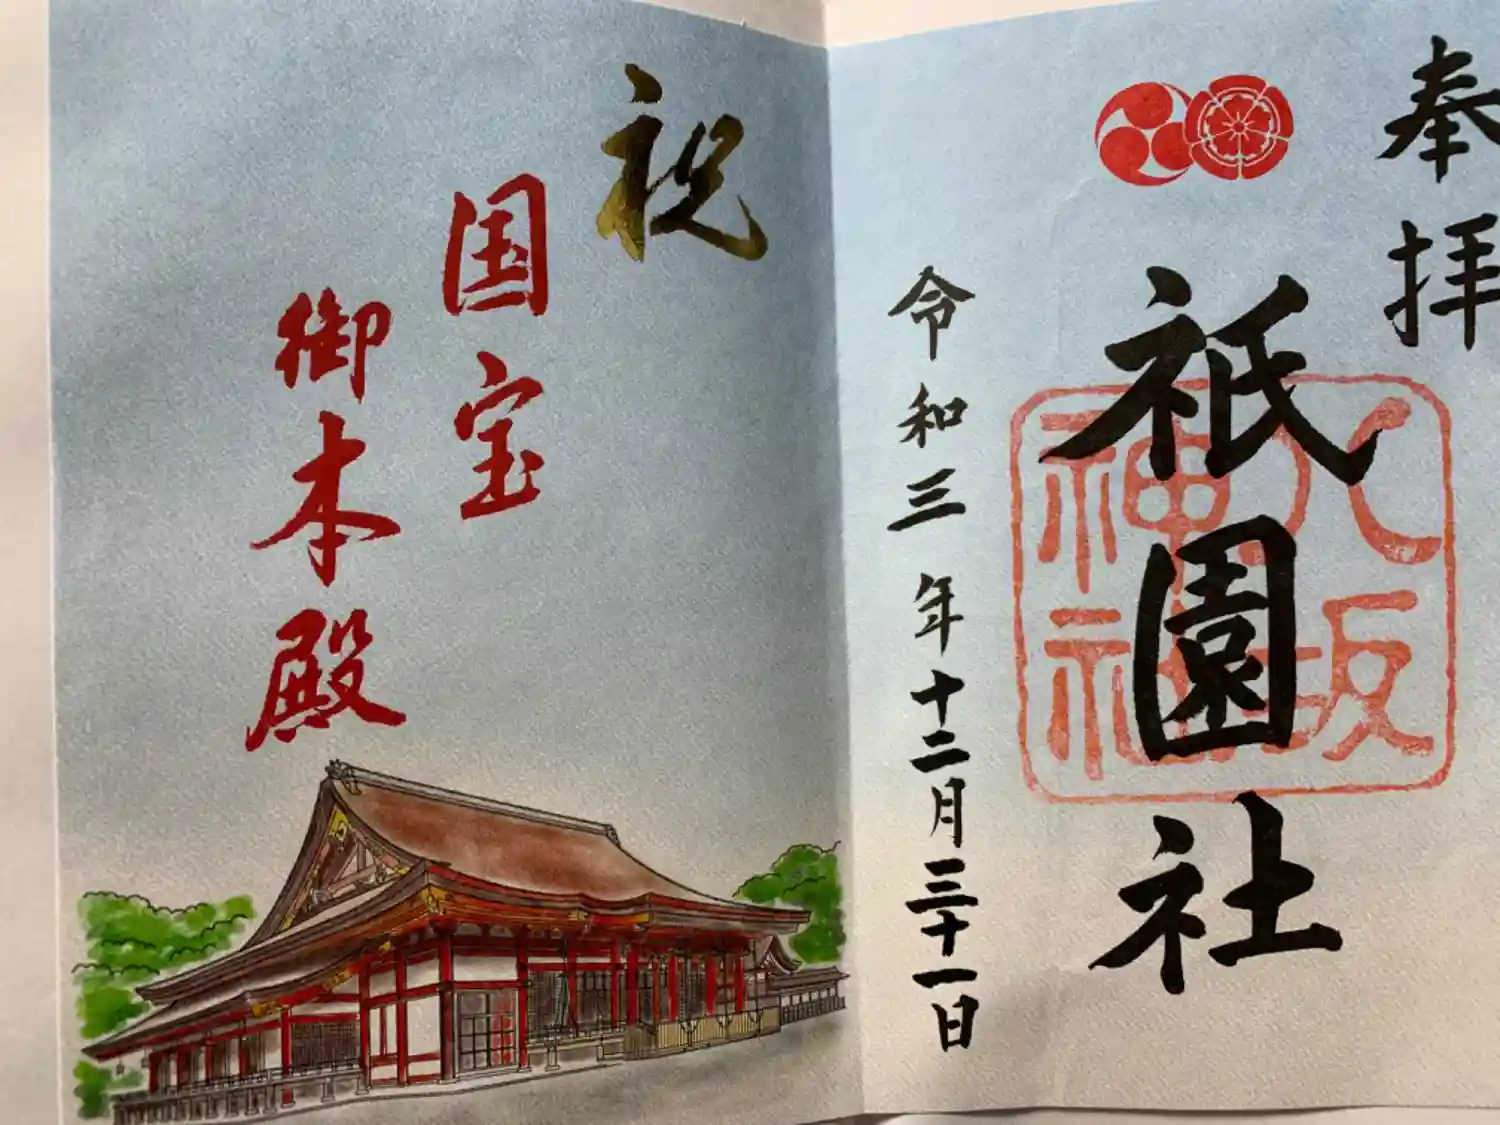 奉拝
祇園社
八坂
神社
令和三年十二月三十一日
祝
国宝
御本殿